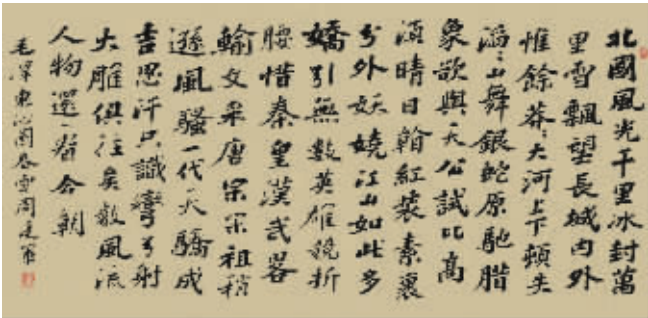 北國風光千里冰封萬
里雪飄望長城内外
惟餘莽〻大河上下頓失
滔〻山舞銀蛇原馳腊
象欲與天公試比高
須晴日紅裝素裹
分外妖嬈江山如此多
嬌引無數英雄競折
腰惜秦皇漢武畧
輸文采唐宗宋祖稍
遜風騷一代天驕成
吉思汗只識彎弓射
大雕俱往矣數風流
人物還看今朝
毛澤東沁園春雪周